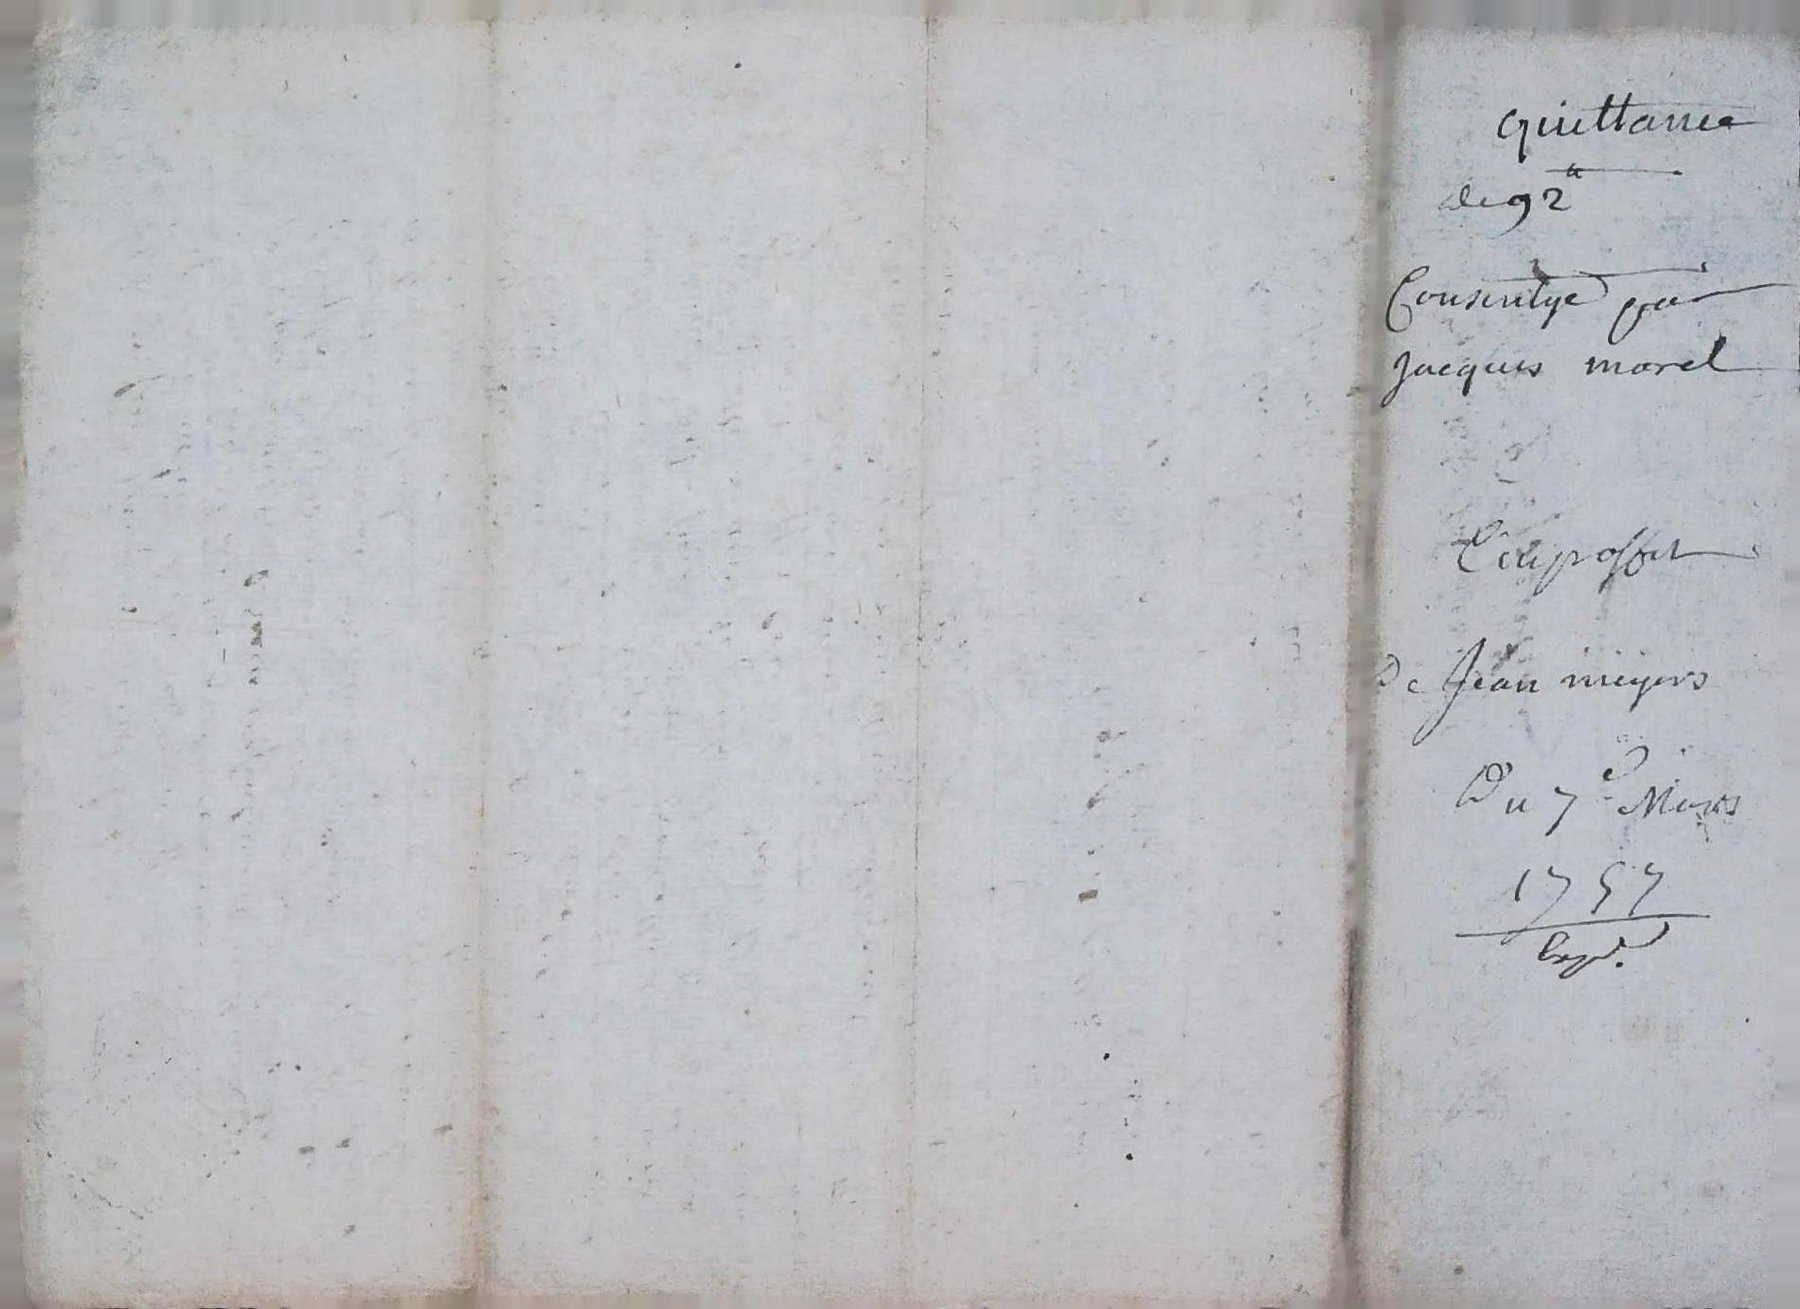 Quittance
de 92ᵗᵗ
Consentye par
Jacques morel
Au proffit
De Jean meyers
Du 7ᵉ Mars
1757
Exp.